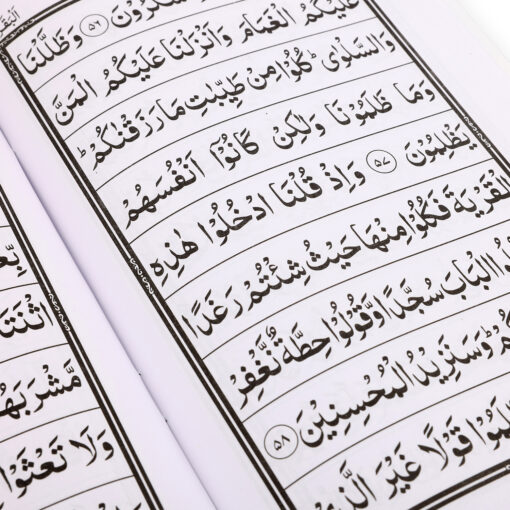 البق
تشكرون ٥٦ وظللنا
عليكم الغمام وانزلنا عليكم المن
والسلوى كلوا من طيبت ما رزقنكم ط
وما ظلمونا ولكن كانوا انفسهم
يظلمون ٥٧ واذ قلنا ادخلوا هذه
القرية فكلوا منها حيث شئتم رغدا
الباب سجدا وقولوا حطة نغفر
وسنزيد المحسنين ٥٨
قولا غير الذي
اثنتا
مشربهم
ولا تعثوا